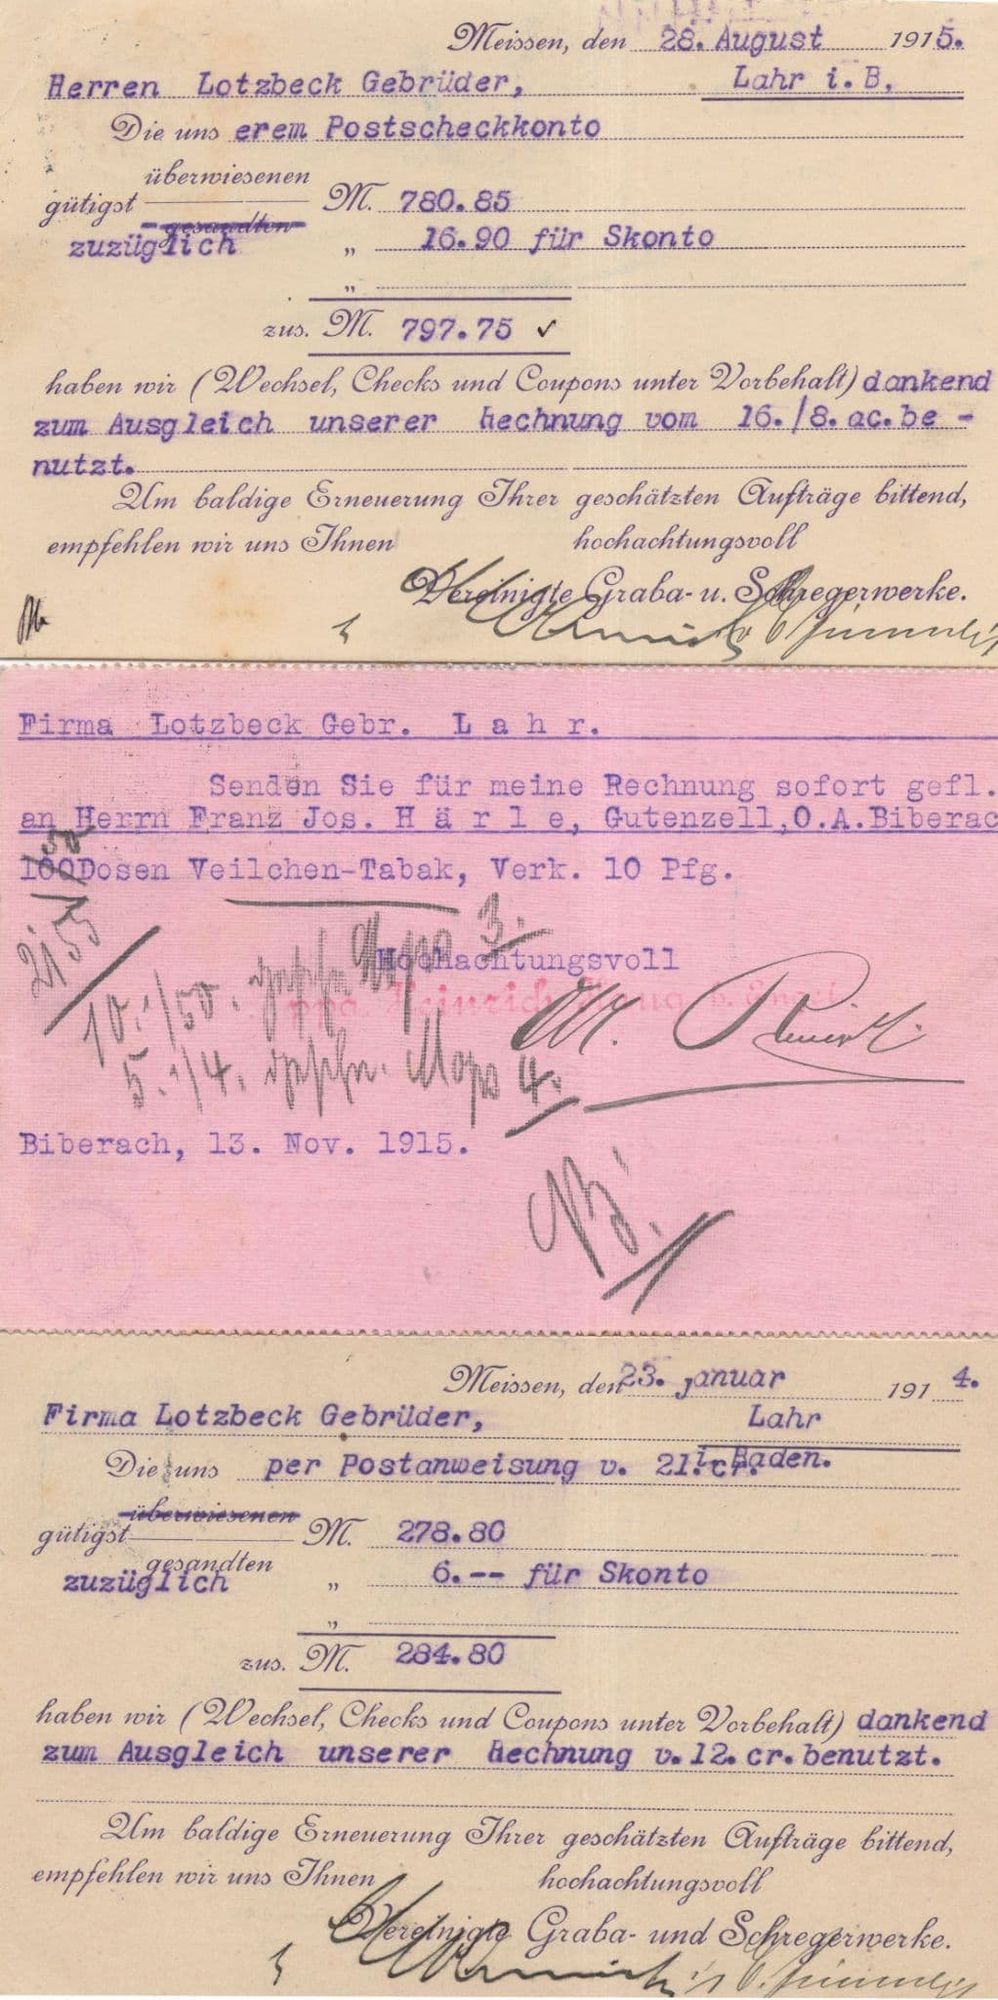 Meissen, den 28. August 1915.
Herren Lotzbeck Gebrüder, Lahr i. B.
Die uns erem Postscheckkonto
überwiesenen
gütigst M. 780.85
gesandten
zuzüglich „ 16.90 für Skonto
„
zus. M. 797.75 ✓
haben wir (Wechsel, Checks und Coupons unter Vorbehalt) dankend
zum Ausgleich unserer Rechnung vom 16./8. ac. be -
nutzt.
Um baldige Erneuerung Ihrer geschätzten Aufträge bittend,
empfehlen wir uns Ihnen hochachtungsvoll
Vereinigte Graba- u. Schregerwerke.
Firma Lotzbeck Gebr. L a h r.
Senden Sie für meine Rechnung sofort gefl.
an Herrn Franz Jos. H ä r l e, Gutenzell, O.A. Biberac
100 Dosen Veilchen-Tabak, Verk. 10 Pfg.
3.
Hochachtungsvoll
ppa. Heinrich
10. 1/50.
5. 1/4. 4.
Biberach, 13. Nov. 1915.
Meissen, den 23. januar 191 4.
Firma Lotzbeck Gebrüder, Lahr
i. Baden.
Die uns per Postanweisung v. 21. cr.
überwiesenen
gütigst M. 278.80
gesandten
zuzüglich „ 6.-- für Skonto
„
zus. M. 284.80
haben wir (Wechsel, Checks und Coupons unter Vorbehalt) dankend
zum Ausgleich unserer Rechnung v. 12. cr. benutzt.
Um baldige Erneuerung Ihrer geschätzten Aufträge bittend,
empfehlen wir uns Ihnen hochachtungsvoll
Vereinigte Graba- und Schregerwerke.